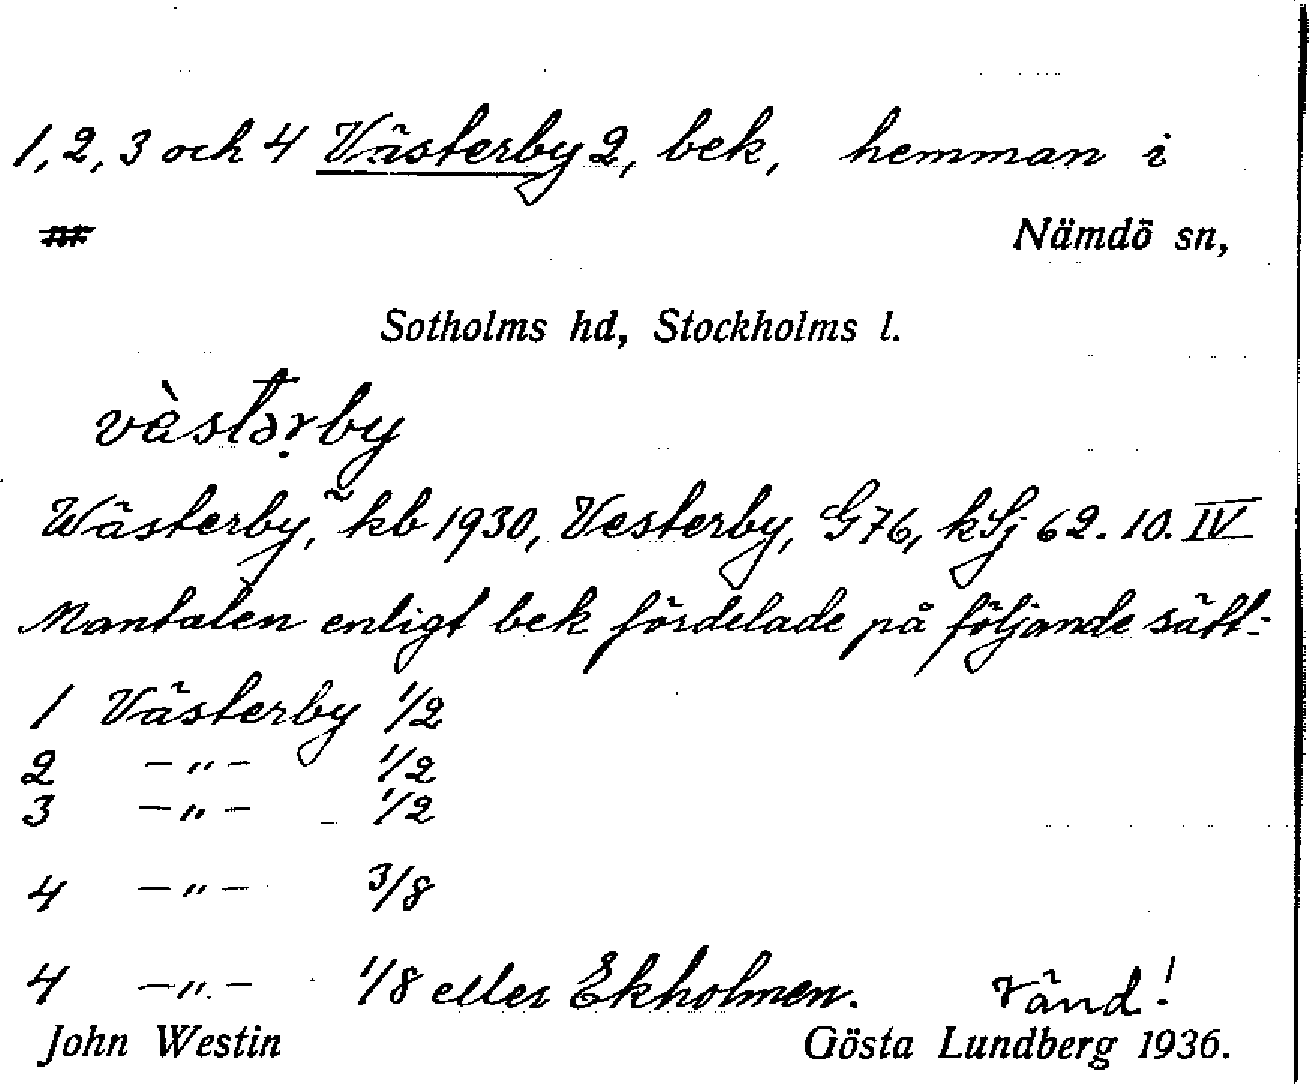 1, 2, 3 och 4 Västerby 2, bek, hemman i
nr
Nämdö sn,
Sotholms hd, Stockholms l.
vàstərby
Wästerby, kb 1930, Vesterby, G 76, kSj 62. 10. IV
Mantalen enligt bek fördelade på följande sätt:
1 Västerby 1/2
2 –„– 1/2
3 –„– 1/2
4 –„– 3/8
4 –„– 1/8 eller Ekholmen. Vänd!
John Westin Gösta Lundberg 1936.